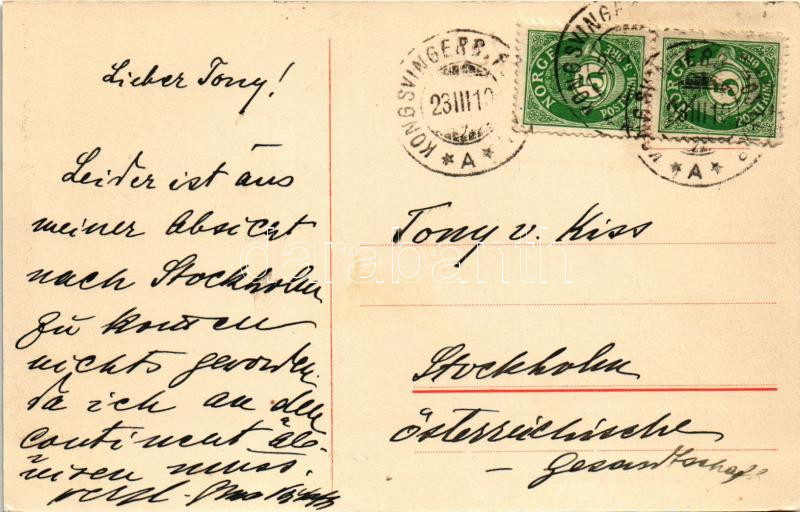 Lieber Tony!
Leider ist aus
meiner Absicht
nach Stockholm
zu kommen
nichts geworden.
da ich an den
continent
muss.
KONGSVINGERB. E.
23 III 19
A
NORGE
5
POSTFRIM. 5 ØRE
KONGSVINGERB. E.
A
NORGE
5
POSTFRIM. 5 ØRE
Tony v. Kiss
Stockholm
österreichische
– Gesandtschaft
darabanth